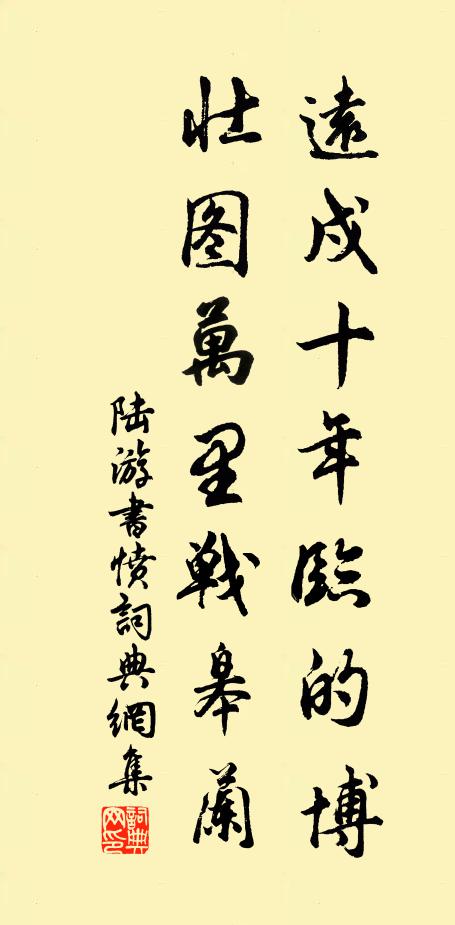 遠戍十年臨的博
壮图萬里戰皋蘭
陆游書憤詞典網集
詞典网印